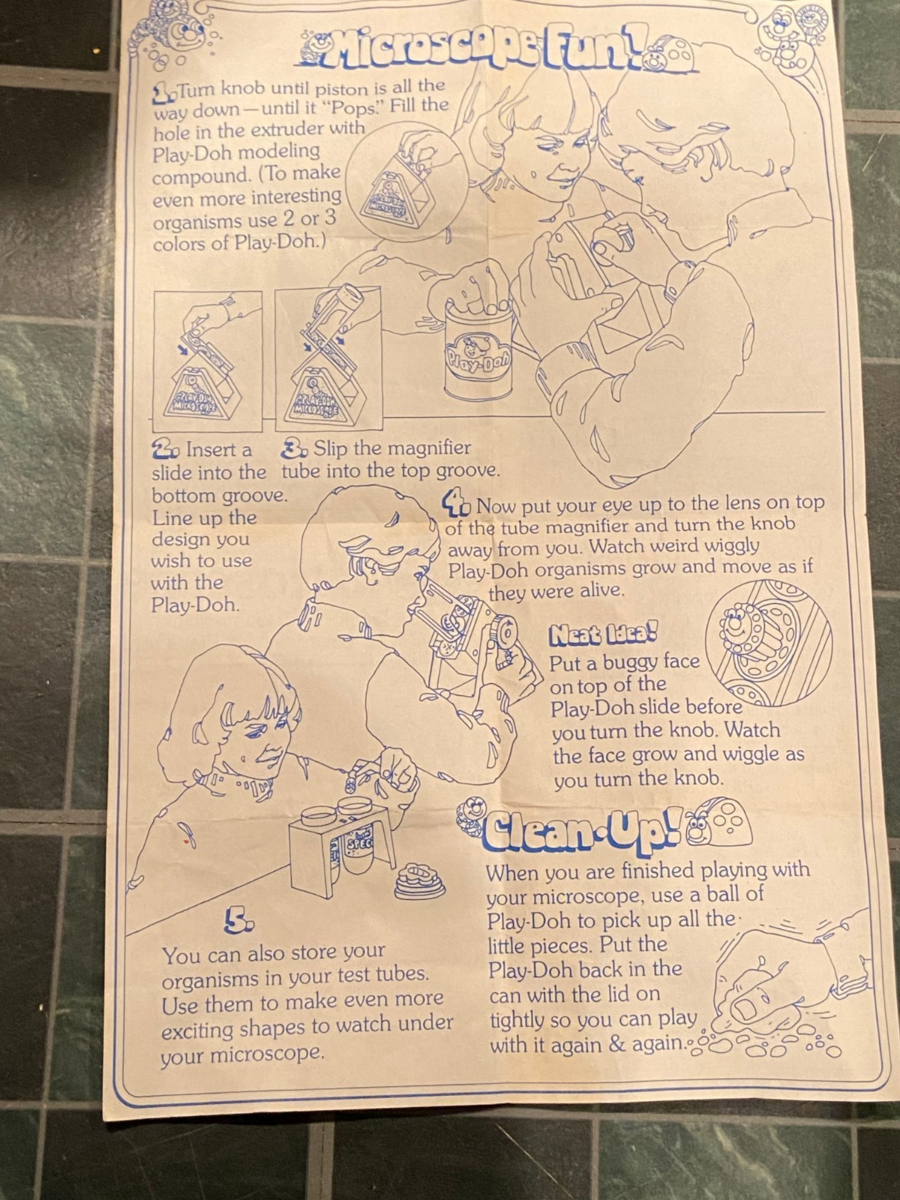 Microscope Fun!
1. Turn knob until piston is all the
way down—until it “Pops.” Fill the
hole in the extruder with
Play-Doh modeling
compound. (To make
even more interesting
organisms use 2 or 3
colors of Play-Doh.)
Play-Doh
PLAY-DOH
MICROSCOPE
PLAY-DOH
MICROSCOPE
2. Insert a
slide into the
bottom groove.
Line up the
design you
wish to use
with the
Play-Doh.
3. Slip the magnifier
tube into the top groove.
4. Now put your eye up to the lens on top
of the tube magnifier and turn the knob
away from you. Watch weird wiggly
Play-Doh organisms grow and move as if
they were alive.
Neat Idea!
Put a buggy face
on top of the
Play-Doh slide before
you turn the knob. Watch
the face grow and wiggle as
you turn the knob.
5.
You can also store your
organisms in your test tubes.
Use them to make even more
exciting shapes to watch under
your microscope.
Clean-Up!
When you are finished playing with
your microscope, use a ball of
Play-Doh to pick up all the
little pieces. Put the
Play-Doh back in the
can with the lid on
tightly so you can play
with it again & again.